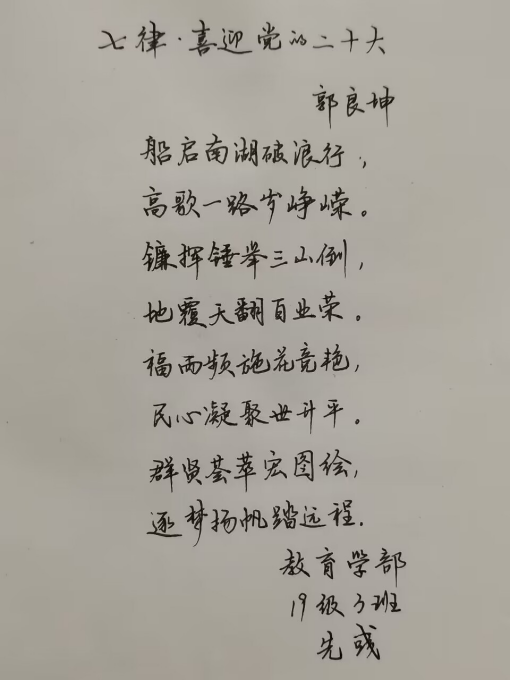 七律·喜迎党的二十大
郭良坤
船启南湖破浪行，
高歌一路岁峥嵘。
镰挥锤举三山倒，
地覆天翻百业荣。
福雨频施花竞艳，
民心凝聚世升平。
群贤荟萃宏图绘，
逐梦扬帆踏远程.
教育学部
19级3班
先彧